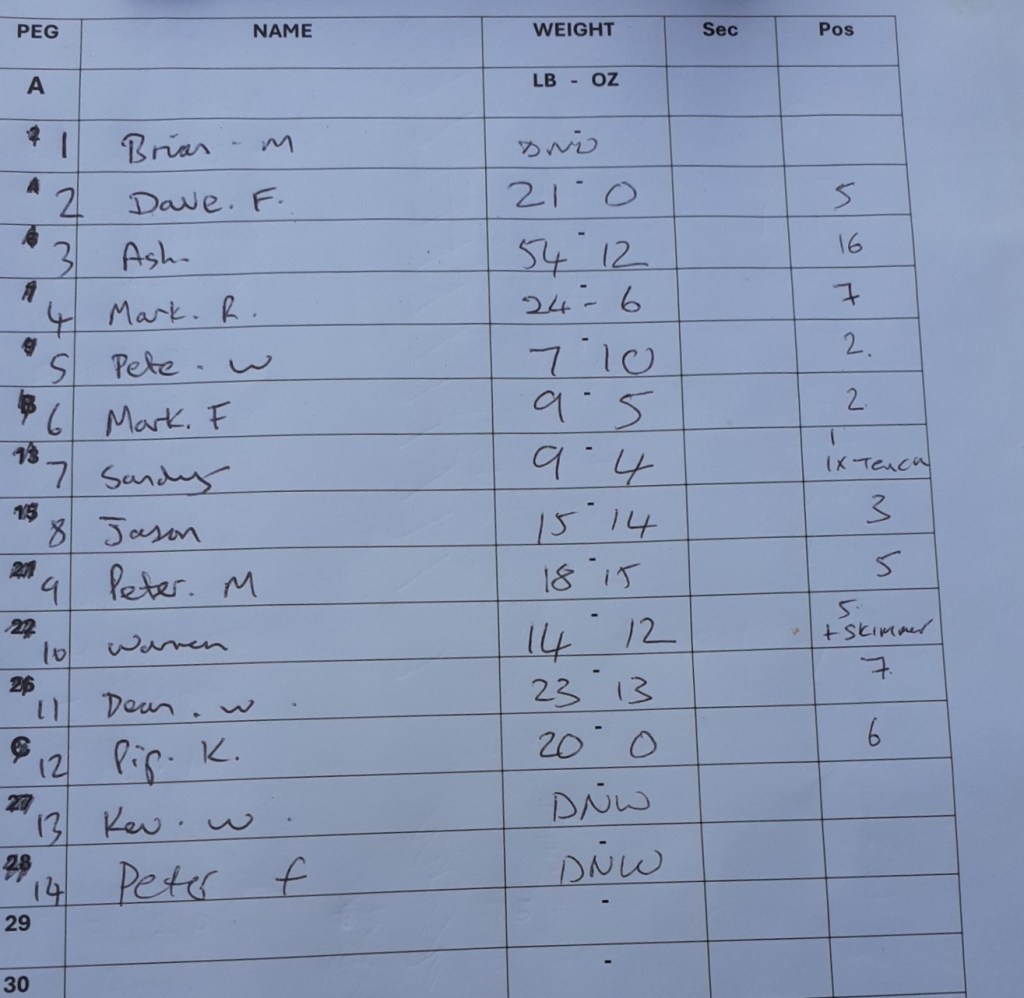 PEG NAME WEIGHT Sec Pos
A LB - OZ
1 Brian - M DNW
2 Dave. F. 21 - 0 5
3 Ash 54 - 12 16
4 Mark. R. 24 - 6 7
5 Pete - W 7 - 10 2.
6 Mark. F 9 - 5 2
7 Sandy 9 - 4 1
1x Tench
8 Jason 15 - 14 3
9 Peter. M 18 - 15 5
10 Warren 14 - 12 5.
+ Skimmer
11 Dean. W. 23 - 13 7.
12 Pip. K. 20 - 0 6
13 Kev. W. DNW
14 Peter f DNW
29 -
30 -